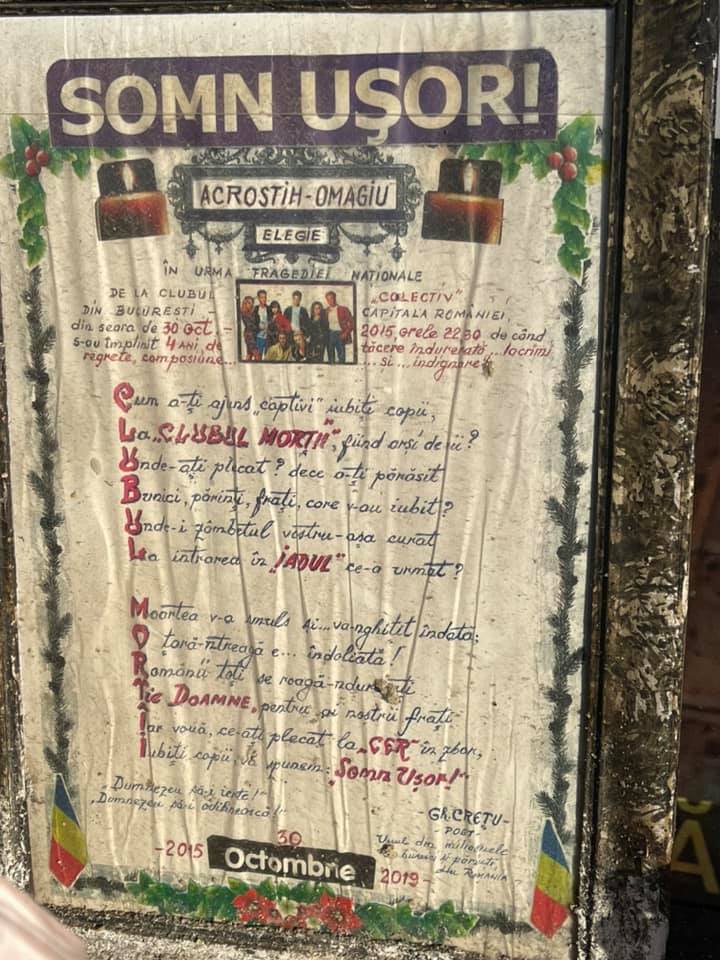 SOMN UŞOR!
ACROSTIH-OMAGIU
ELEGIE
ÎN URMA TRAGEDIEI NAȚIONALE
DE LA CLUBUL „COLECTIV”
DIN BUCUREȘTI - CAPITALA ROMÂNIEI,
din seara de 30 oct. - 2015, orele 22 30 de când
s-au împlinit 4 ANI, de tăcere îndurerată... lacrimi
regrete, compasiune... ... și... indignare
Cum a-ți ajuns „captivi” iubiți copii,
La „CLUBUL MORȚII”, fiind arși de vii?
Unde-ați plecat? dece a-ți părăsit
Bunici, părinți, frați, care v-au iubit?
Unde-i zâmbetul vostru-așa curat
La intrarea în „IADUL” ce-a urmat?
Moartea v-a smuls și... va-nghițit îndată;
O țară-ntreagă e... îndoliată!
Românii toți se roagă-ndurerați
Ție DOAMNE, pentru ai noștri frați-
Iar vouă, ce-ați plecat la „CER” în zbor,
Iubiți copii, vă spunem: „Somn Ușor!”
„Dumnezeu să-i ierte!”-
„Dumnezeu să-i odihnească!”
-GH.CREȚU-
-POET-
Unul din milioanele
de bunici și părinți
din ROMÂNIA
-2015 30 Octombrie 2019-
Ă